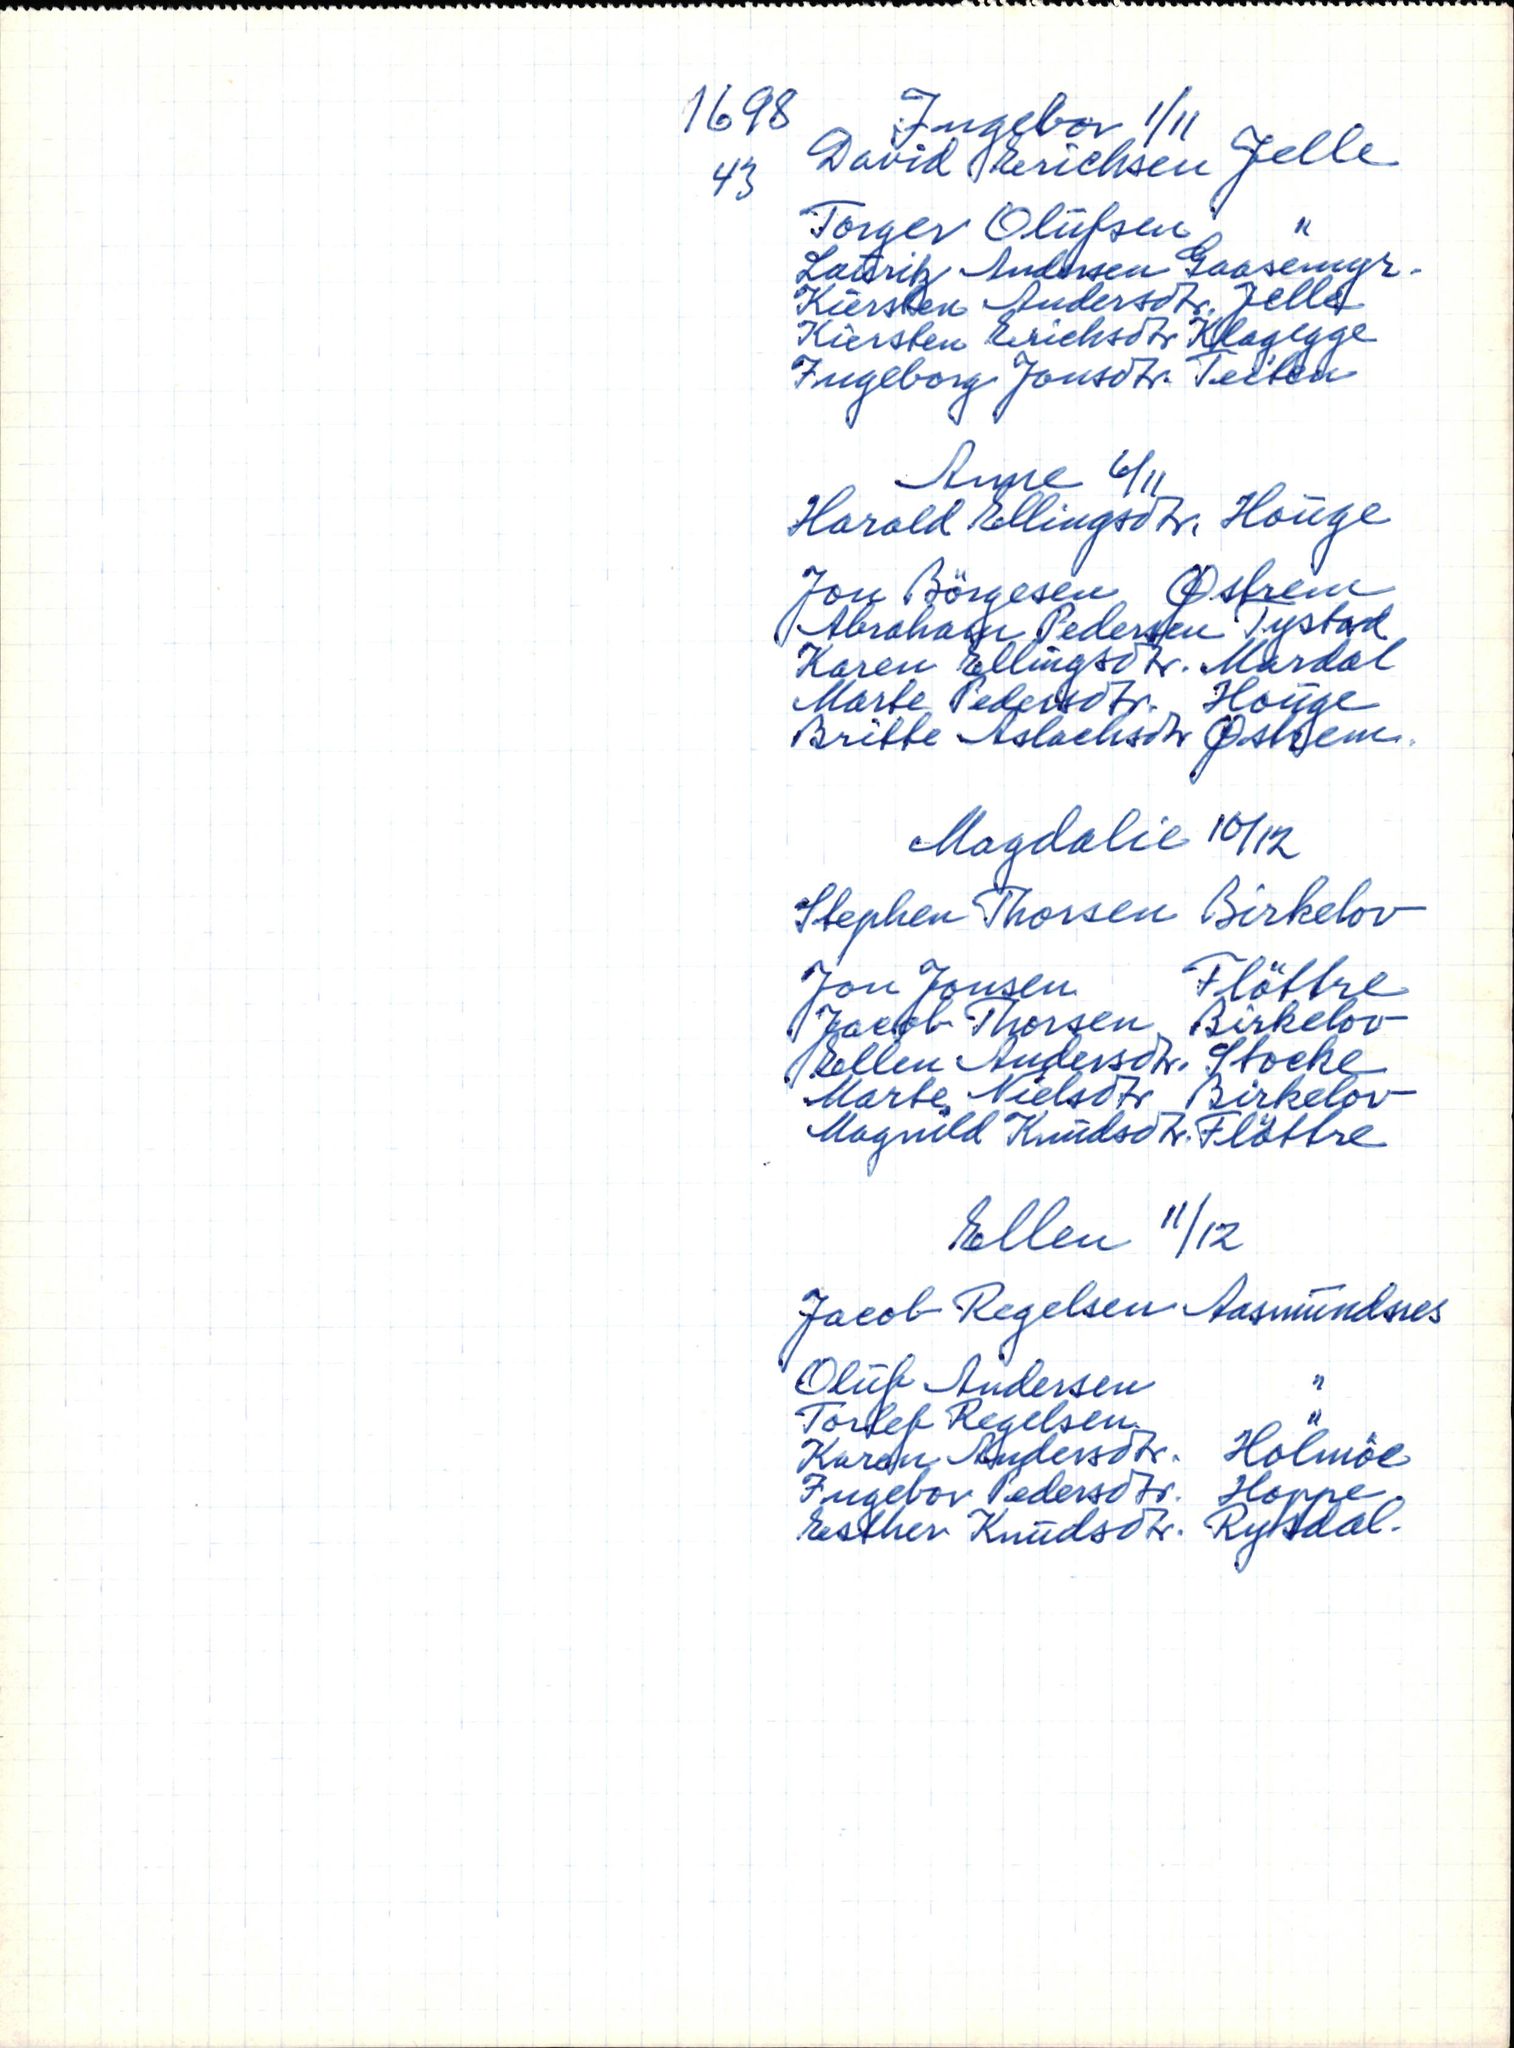 1698 Ingebor 1/11
43 David Erichsen Jelle
Torger Olüfsen "
Lauritz Andersen Gaasemyr.
Kiersten Andersdtr. Jelle
Kiersten Erichsdtr Klagegge
Ingeborg Jonsdtr. Teiten
Anne 6/11
Harald Ellingsdtr. Houge
Jon Börgesen Østrem
Abraham Pedersen Tystad
Karen Ellingsdtr. Mardal
Marte Pedersdtr. Houge
Britte Aslachsdtr Østrem.
Magdalie 10/12
Stephen Thorsen Birkelov
Jon Jonsen Flöttre
Jacob Thorsen Birkelov
Ellen Andersdtr. Stocke
Marte Nielsdtr Birkelov
Magnild Knudsdtr. Flöttre
Ellen 11/12
Jacob Regelsen Aasmundsnes
Oluf Andersen "
Torlef Regelsen "
Karen Andersdtr. Holmöe
Ingebor Pedersdtr. Hoppe.
Esther Knudsdtr. Rysdal.